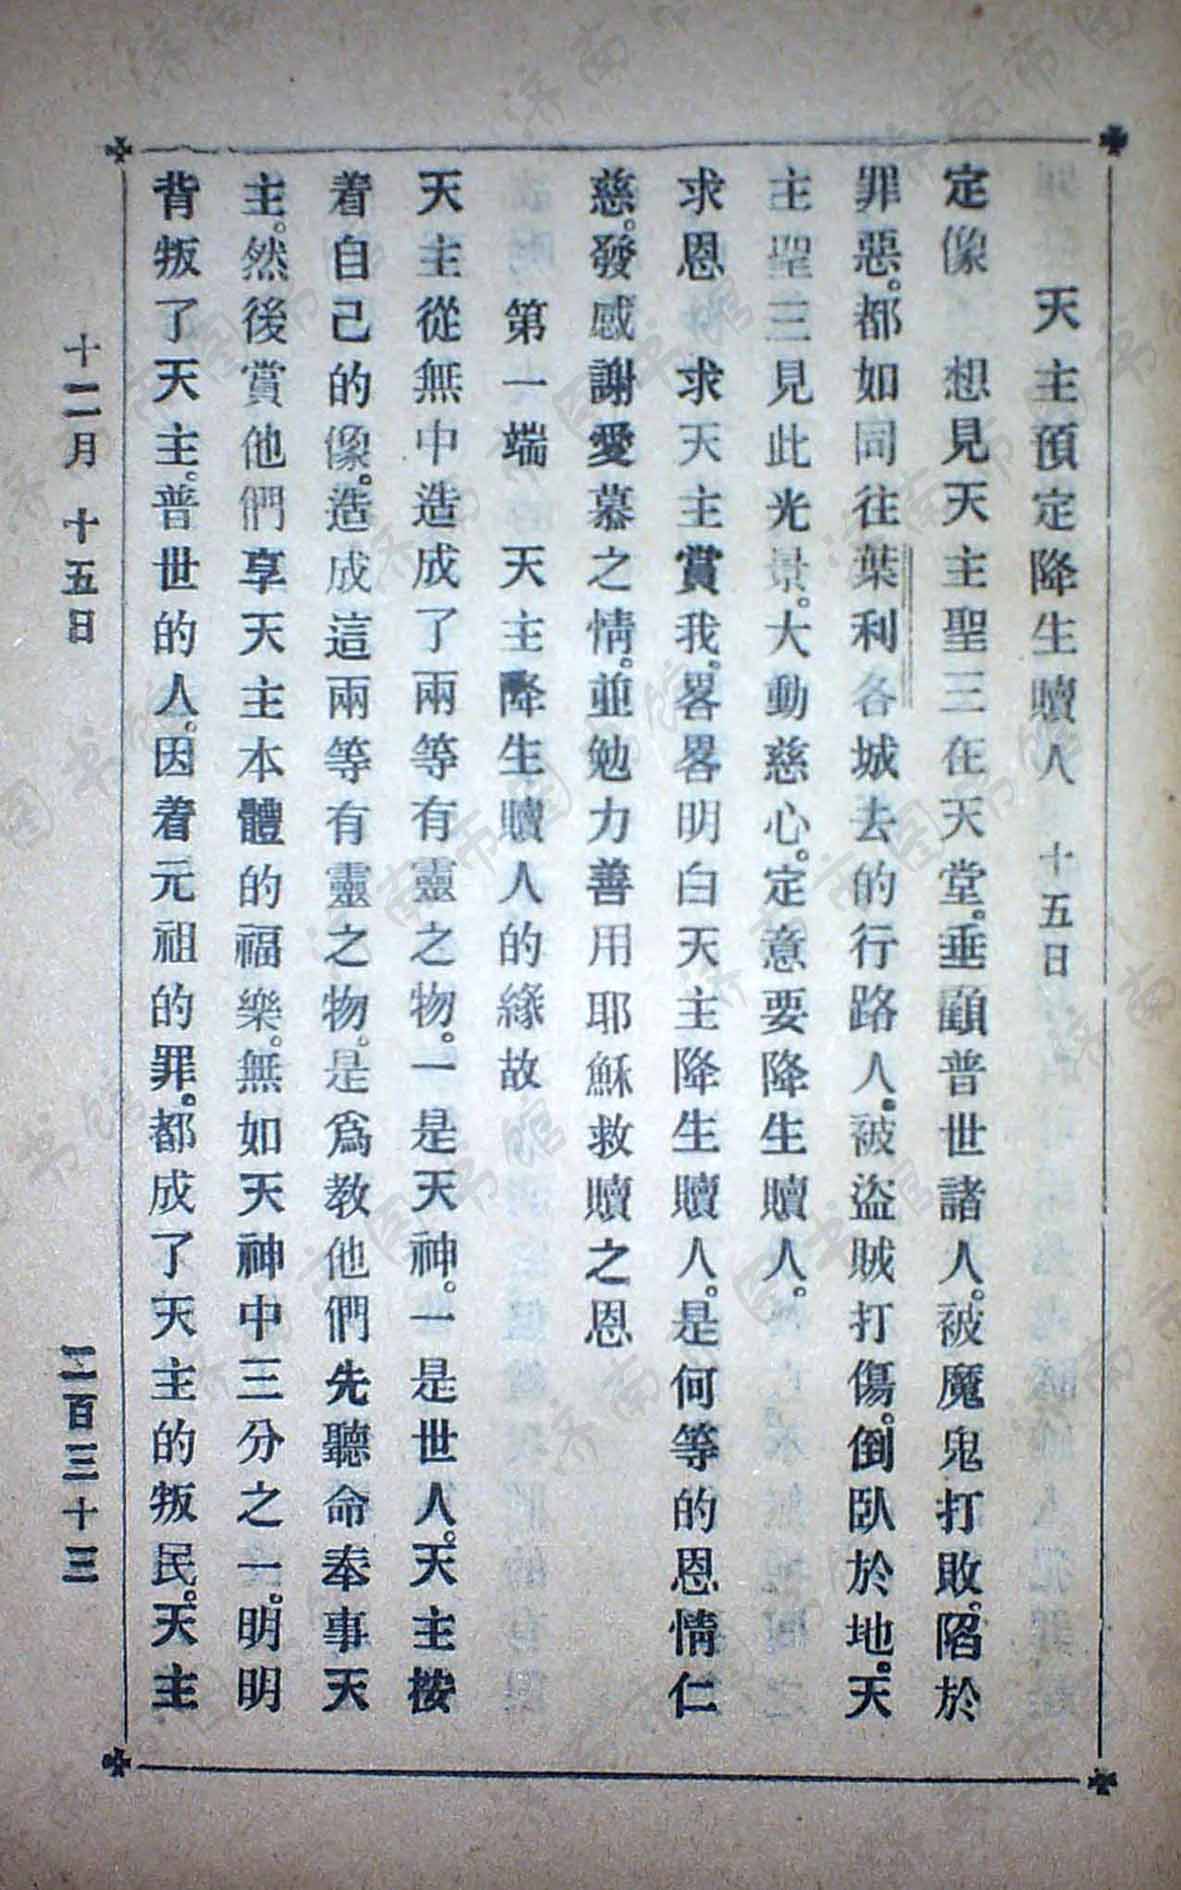 天主預定降生贖人 十五日
定像 想見天主聖三在天堂。垂顧普世諸人。被魔鬼打敗。陷於
罪惡。都如同往葉利各城去的行路人。被盜賊打傷。倒臥於地。天
主聖三見此光景。大動慈心。定意要降生贖人。
求恩 求天主賞我。畧畧明白天主降生贖人。是何等的恩情仁
慈。發感謝愛慕之情。並勉力善用耶穌救贖之恩
第一端 天主降生贖人的緣故
天主從無中造成了兩等有靈之物。一是天神。一是世人。天主按
着自己的像。造成這兩等有靈之物。是爲教他們先聽命奉事天
主。然後賞他們享天主本體的福樂。無如天神中三分之一。明明
背叛了天主。普世的人。因着元祖的罪。都成了天主的叛民。天主
十二月 十五日 二百三十三
济南市图书馆